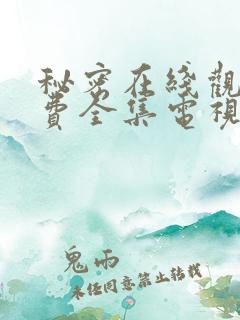 秘密在綫觀
費全集電視
鬼雨
未经同意禁止转载